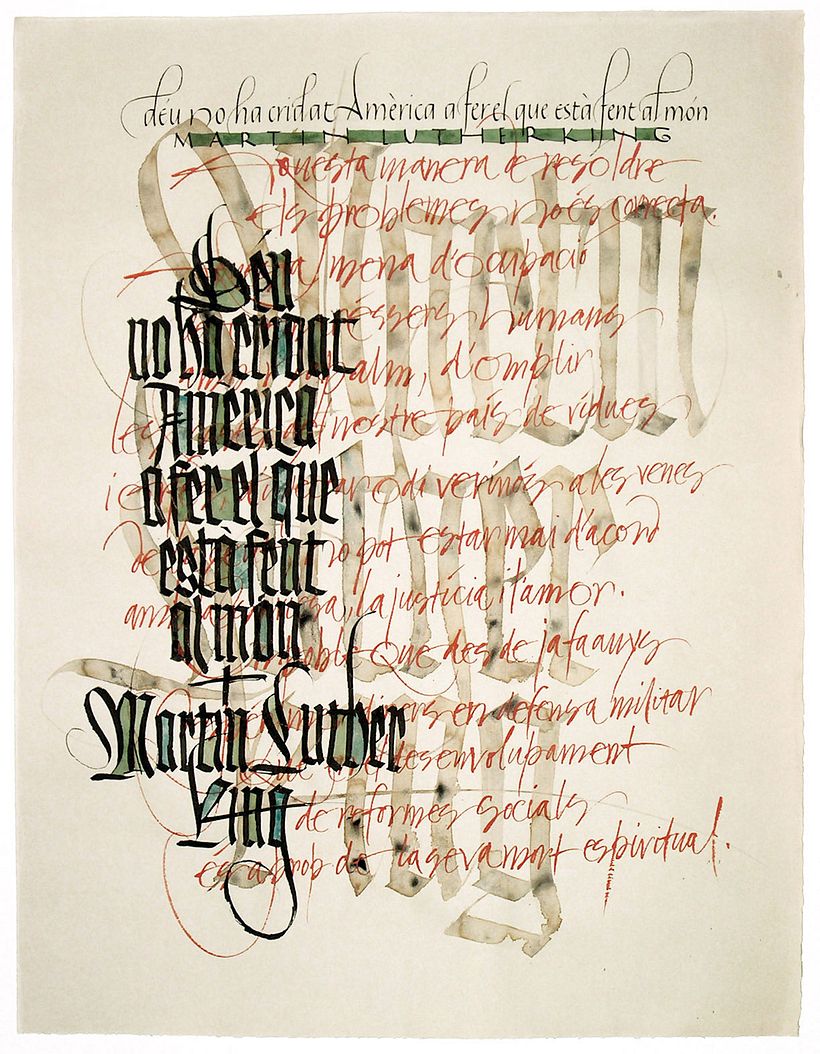 déu no ha cridat Amèrica a fer el que està fent al món
MARTIN LUTHER KING
Aquesta manera de resoldre
els problemes no és correcta.
mena d'ocupació
éssers humans
d'omblir
les nostre país de vidues
i odi verinós a les venes
De no pot estar mai d'acord
amb la justícia i l'amor.
que des de ja fa anys
diners en defensa militar
que desenvolupament
de reformes socials
és a prob de la seva mort espiritual.
Déu
no ha cridat
Amèrica
a fer el que
està fent
al món
Martin Luther
King
Martin
Luther
King